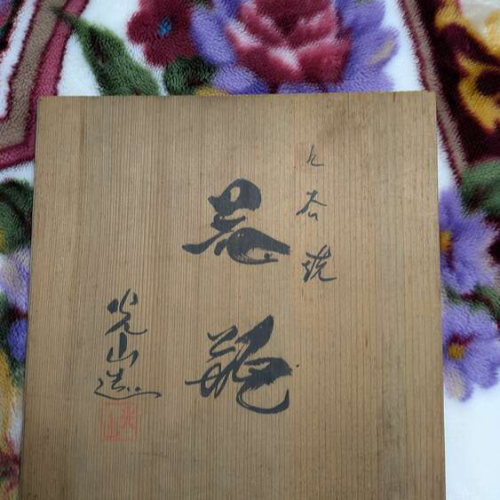 九谷焼
花瓶
光山造
光山